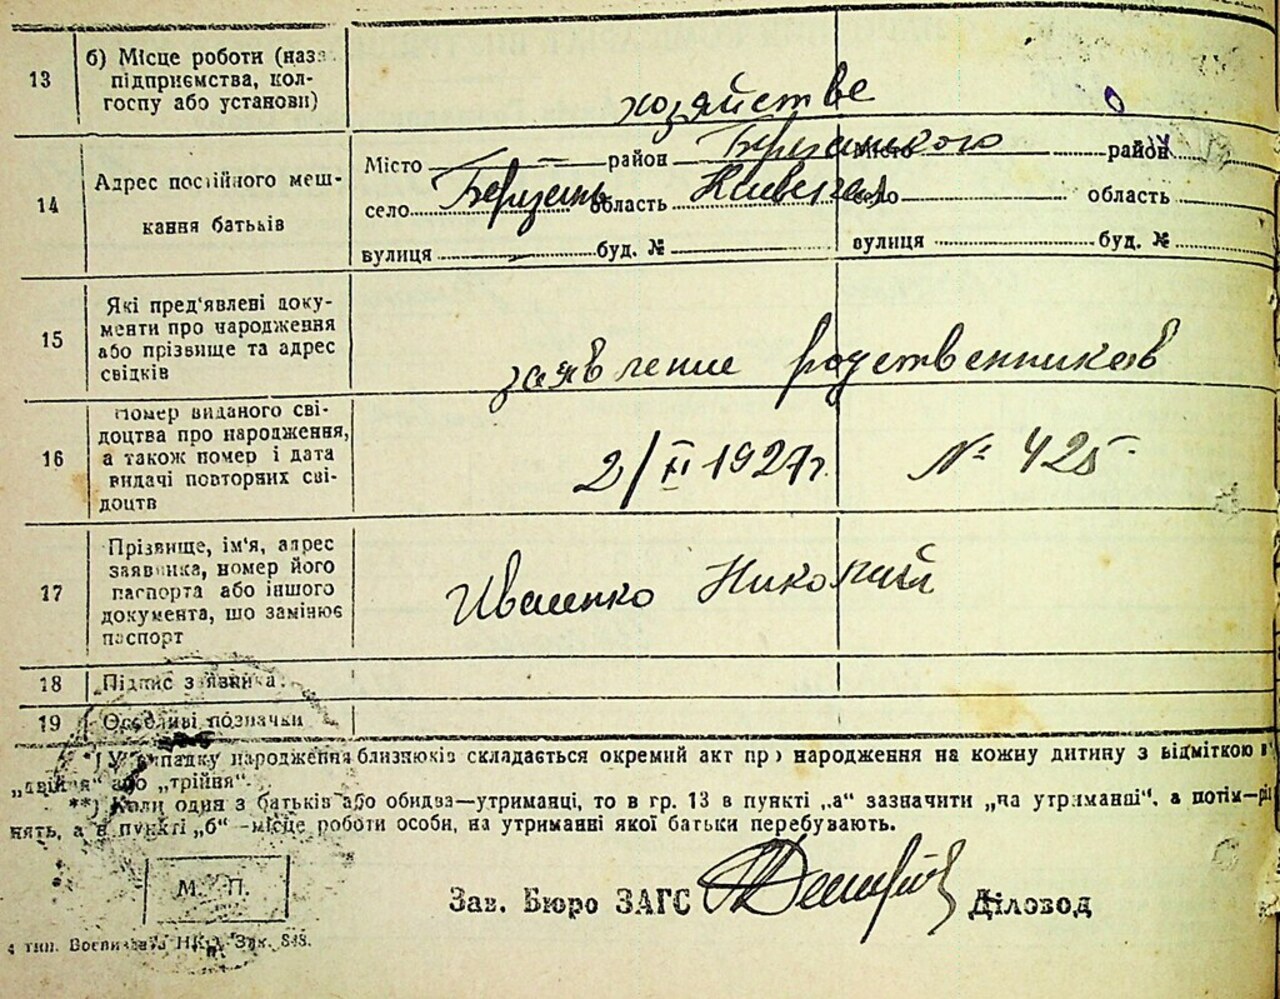 13
б) Місце роботи (назв
підприємства, кол-
госпу або установи)
хозяйстве
14
Адрес постійного меш-
кання батьків
Місто район Березанского Місто район
село Березань область Киевская село область
вулиця буд. № вулиця буд. №
15
Які пред'явлені доку-
менти про народження
або прізвище та адрес
свідків
заявление родственников
16
Номер виданого сві-
доцтва про народження,
а також номер і дата
видачі повторних сві-
доцтв
2/XI 1927г. № 425
17
Прізвище, ім'я, адрес
заявника, номер його
паспорта або іншого
документа, що замінює
паспорт
Иваненко Николай
18 Підпис заявника
19 Особливі позначки
*) У випадку народження близнюків складається окремий акт про народження на кожну дитину з відміткою
„двійня" або „трійня".
**) Коли один з батьків або обидва—утриманці, то в гр. 13 в пункті „а" зазначити „на утриманні", а потім—
нять, а в пункті „б"—місце роботи особи, на утриманні якої батьки перебувають.
М. П.
Зав. Бюро ЗАГС Діловод
4 тип. Воєнвидата НК Зак. 848.